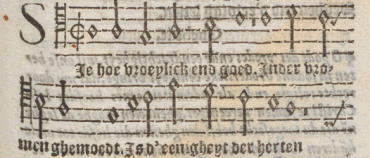 S
Je hoe vroeylick end goed. Inder vro-
men ghemoedt. Js d' eenigheyt der herten